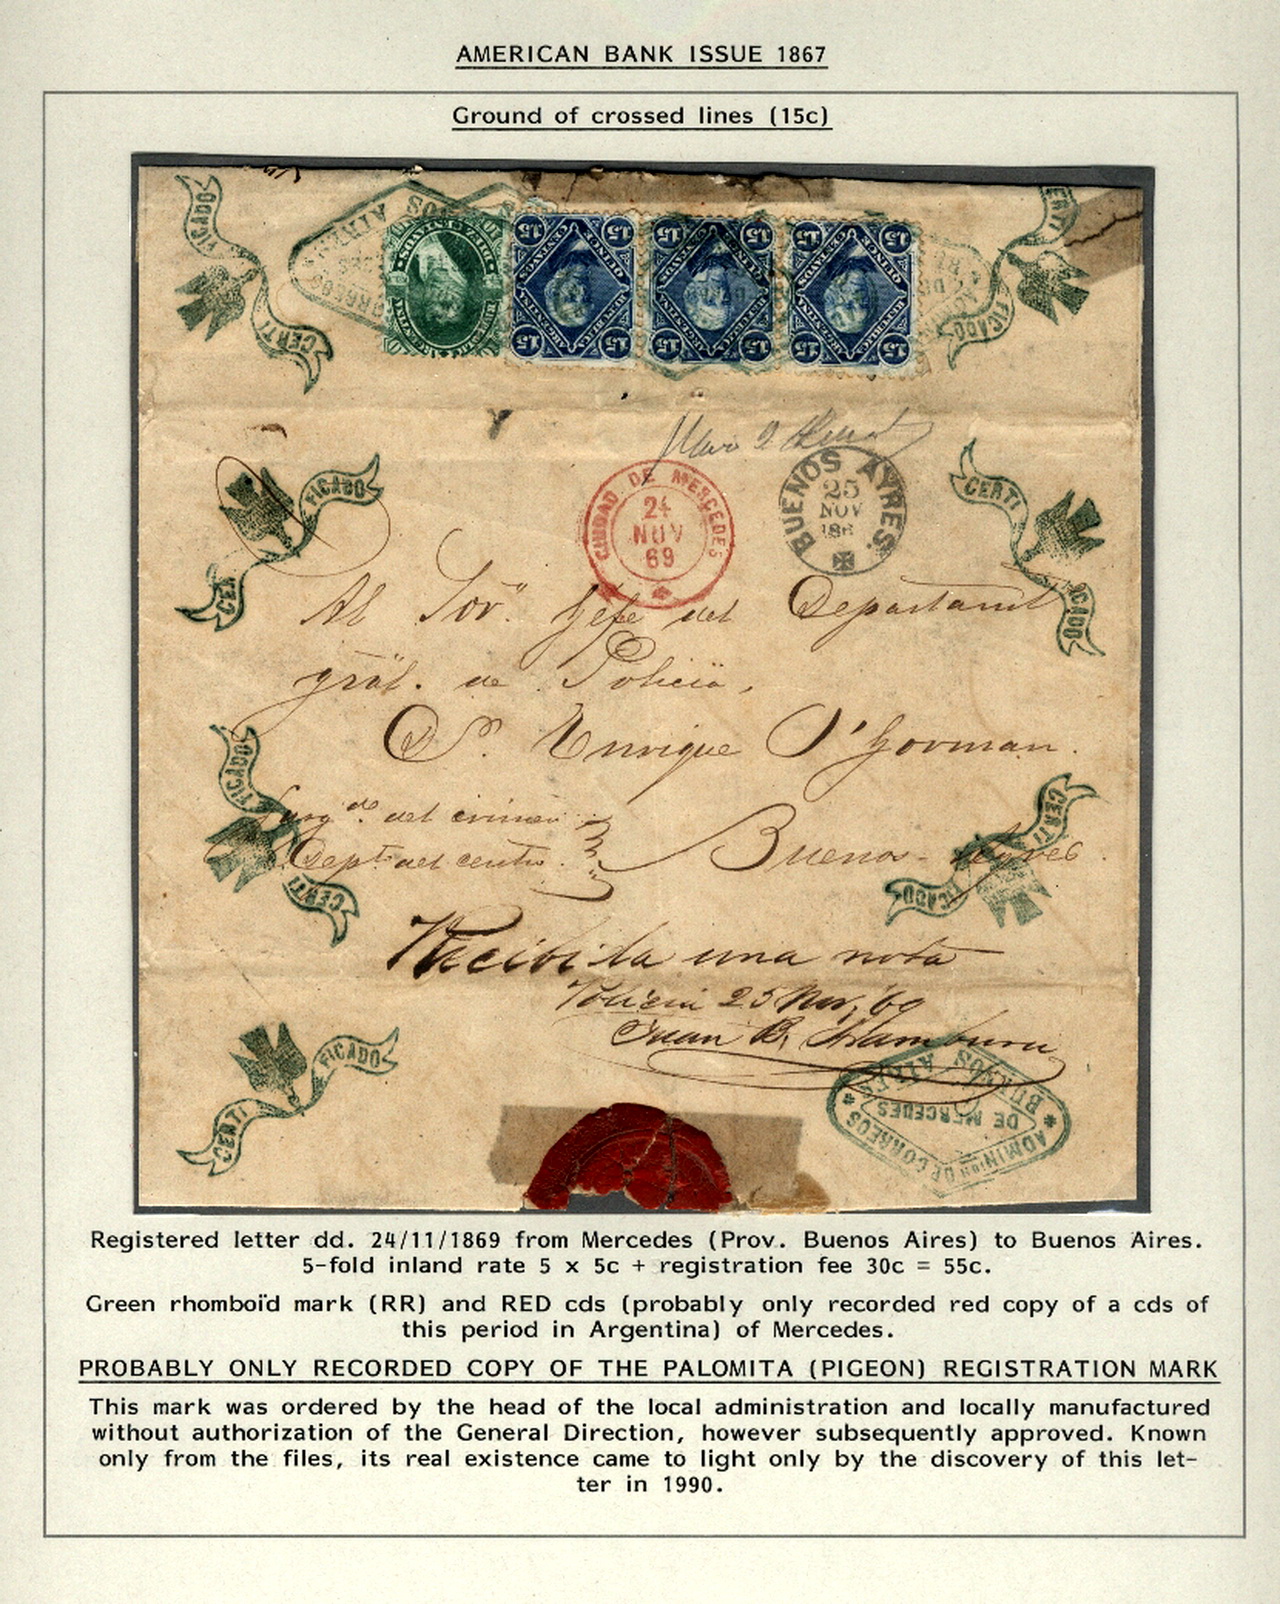 AMERICAN BANK ISSUE 1867
Ground of crossed lines (15c)
FICADO
CERTI
CERTI
FICADO
DIEZ CENTAVOS
15 15 15 15 15 15
QUINCE CENTAVOS QUINCE CENTAVOS QUINCE CENTAVOS
REPUBLICA ARGENTINA REPUBLICA ARGENTINA REPUBLICA ARGENTINA
15 15 15 15 15 15
CIUDAD DE MERCEDES
24
NOV
69
BUENOS AYRES.
25
NOV
186
FICADO
CER
CERTI
CADO
Al Sor. Gefe del Departamt
gräl. de Policia,
Dn. Enrique O'Gorman.
FICADO
CERTI
Juzgdo. del crimen
Depto del centro.
Buenos-Ayres.
CERTI
FICADO
Recibi la una nota
Policia 25 Nov, 69
Juan B.
FICADO
CERTI
BUENOS AIRES
DE MERCEDES
* ADMINION DE CORREOS *
Registered letter dd. 24/11/1869 from Mercedes (Prov. Buenos Aires) to Buenos Aires.
5-fold inland rate 5 x 5c + registration fee 30c = 55c.
Green rhomboïd mark (RR) and RED cds (probably only recorded red copy of a cds of
this period in Argentina) of Mercedes.
PROBABLY ONLY RECORDED COPY OF THE PALOMITA (PIGEON) REGISTRATION MARK
This mark was ordered by the head of the local administration and locally manufactured
without authorization of the General Direction, however subsequently approved. Known
only from the files, its real existence came to light only by the discovery of this let-
ter in 1990.